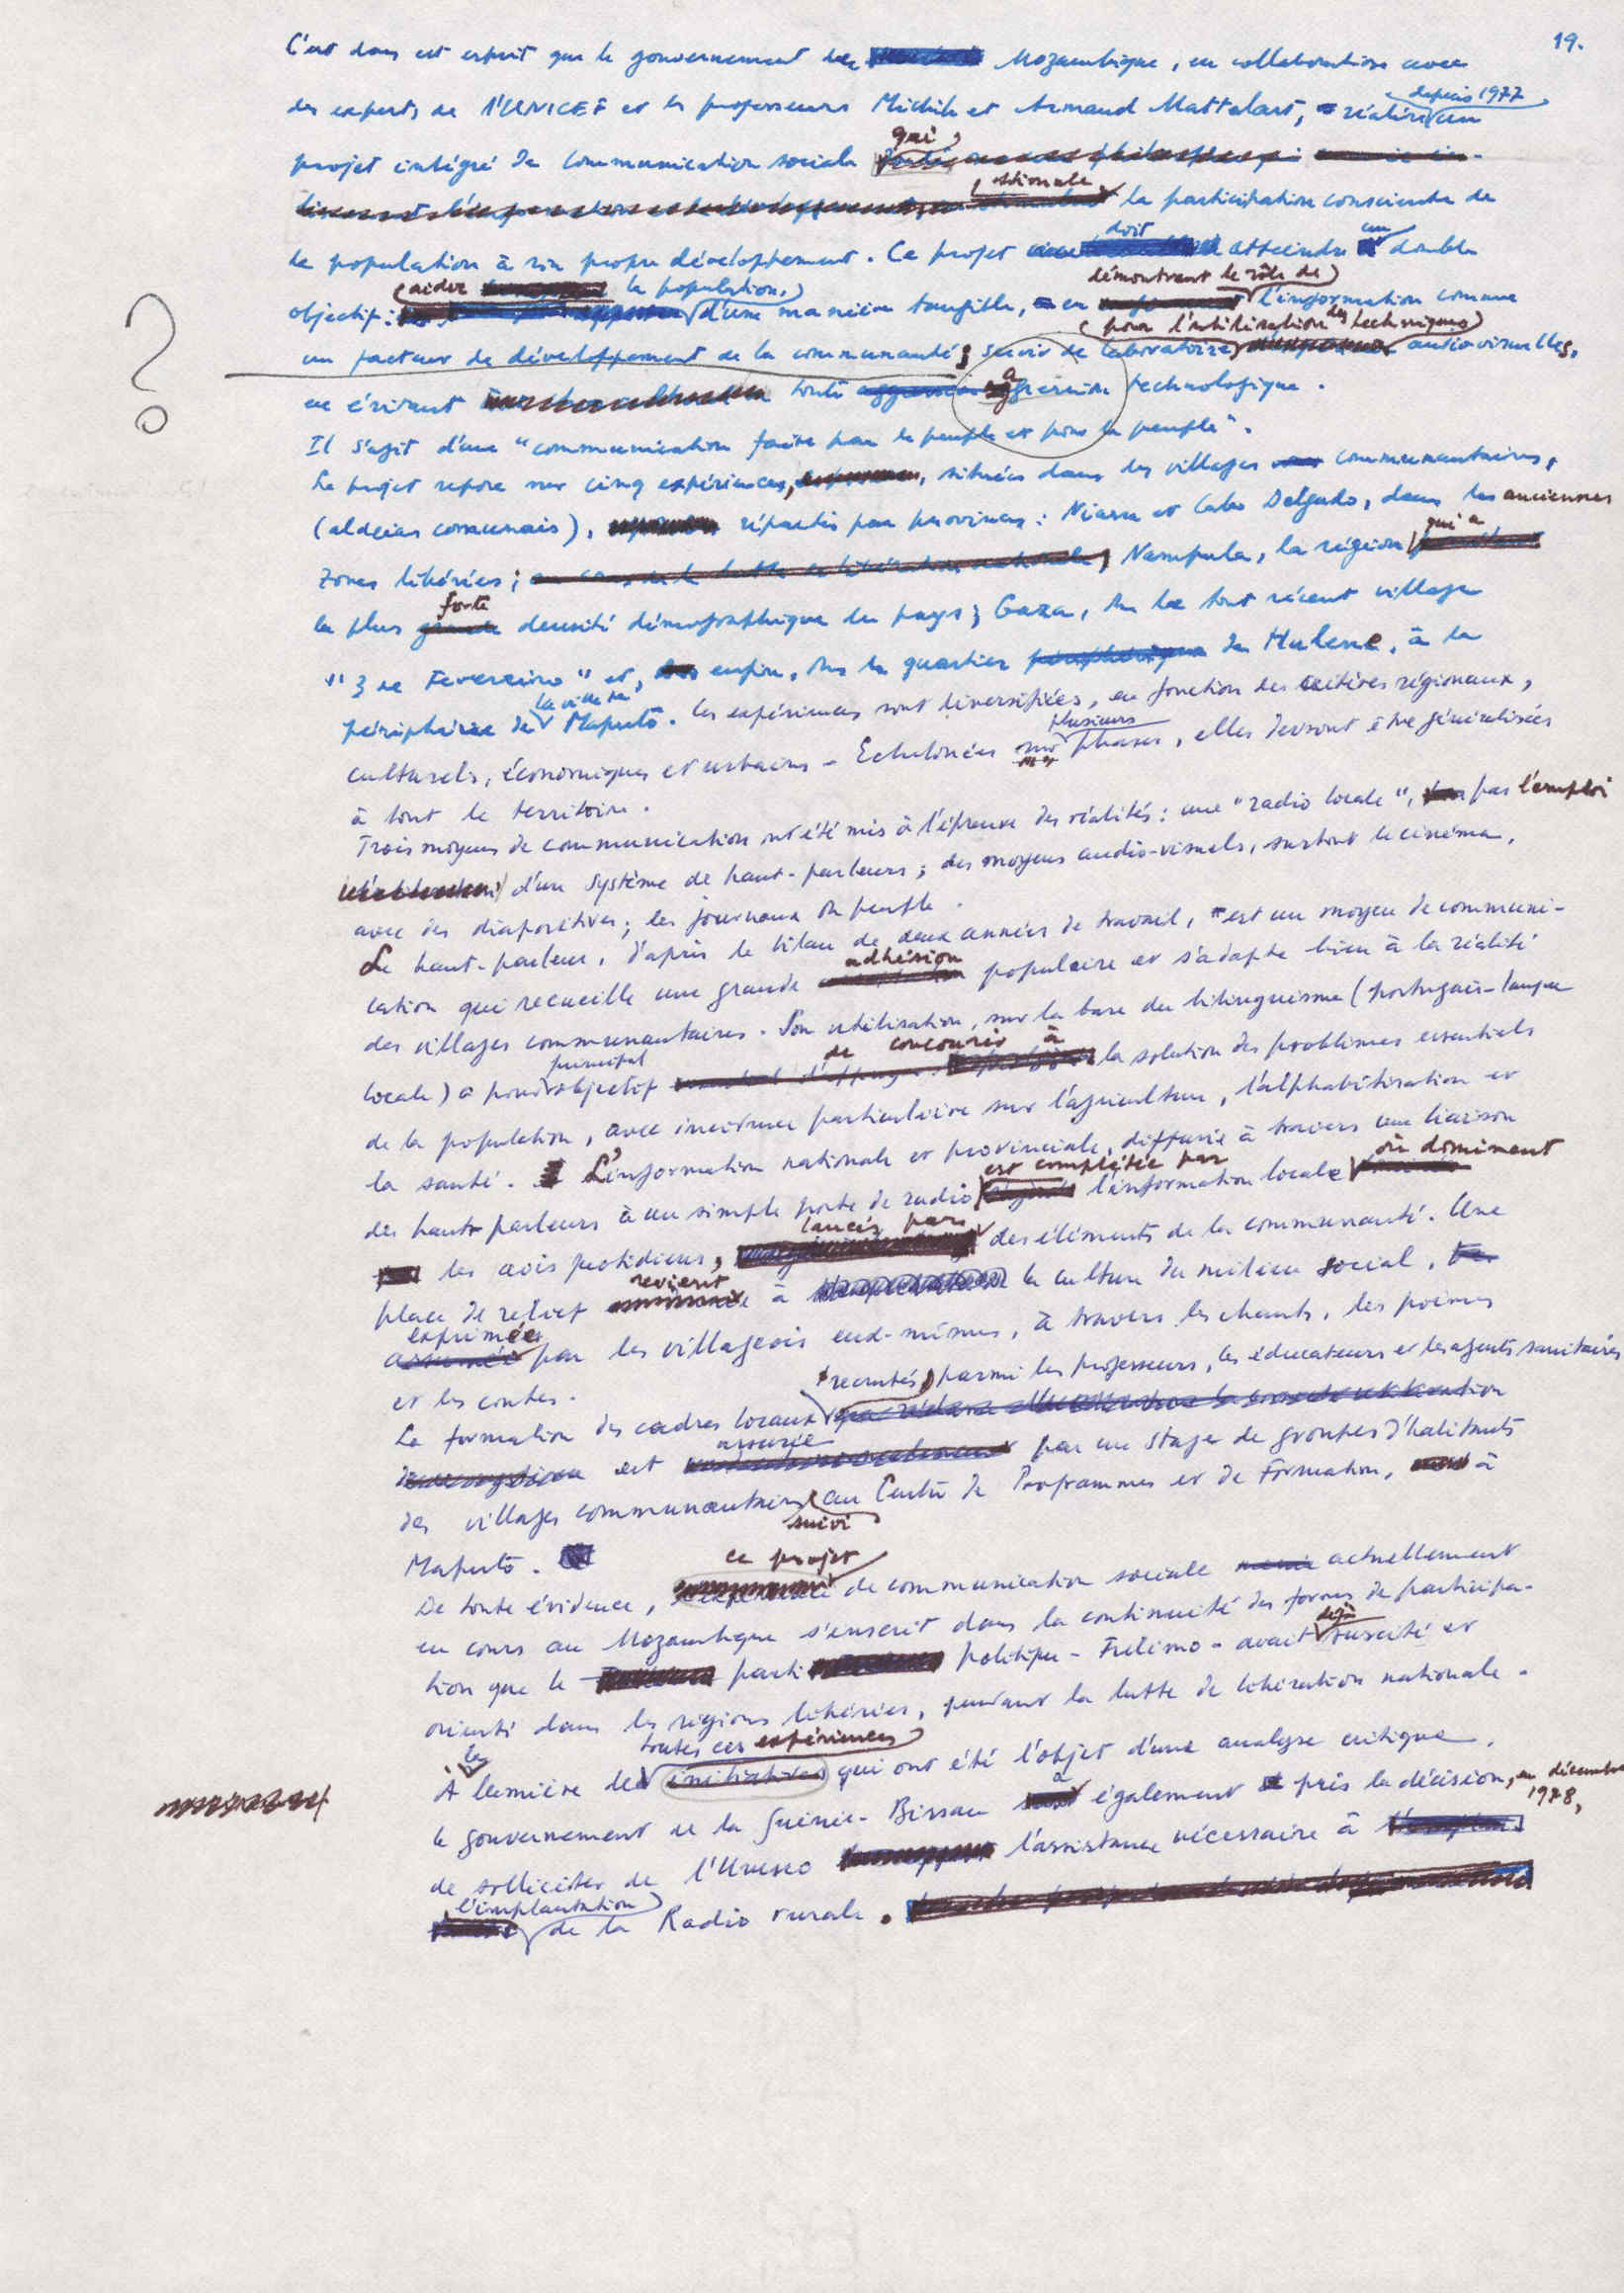 19.
C'est dans cet esprit que le gouvernement de Mozambique, en collaboration avec
depuis 1977
des experts de l'UNICEF et les professeurs Michèle et Armand Mattelart, réalise un
qui
projet intégré de communication sociale
stimule la participation consciente de
doit un
la population à son propre développement. Ce projet atteindre double
aider la population, démontrant le rôle de
objectif: d'une manière tangible, en l'information comme
(pour l'utilisation des techniques)
un facteur de développement de la communauté; servir de laboratoire audio-visuelles,
en évitant toute agression technologique.
Il s'agit d'une "communication faite par le peuple et pour le peuple".
Le projet repose sur cinq expériences, situées dans des villages communautaires,
(aldeias comunais), réparties par provinces: Niassa et Cabo Delgado, dans les anciennes
qui a
zones libérées; Nampula, la région
forte
la plus densité démographique du pays; Gaza, dans le tout récent village
"3 de Fevereiro" et, enfin, dans le quartier de Hulene, à la
la ville de
périphérie de Maputo. Ces expériences sont diversifiées, en fonction des critères régionaux,
plusieurs
culturels, économiques et urbains. Echelonées sur phases, elles devront être généralisées
à tout le territoire.
Trois moyens de communication ont été mis à l'épreuve des réalités: une "radio locale", par l'emploi
d'un système de haut-parleurs; des moyens audio-visuels, surtout le cinéma,
avec des diapositives; les journaux du peuple.
Le haut-parleur, d'après le bilan de deux années de travail, est un moyen de communi-
adhésion
cation qui recueille une grande populaire et s'adapte bien à la réalité
des villages communautaires. Son utilisation, sur la base du bilinguisme (portugais-langue
principal de concourir à
locale) a pour objectif la solution des problèmes essentiels
de la population, avec incidence particulière sur l'agriculture, l'alphabétisation et
la santé. L'information nationale et provinciale, diffusée à travers une liaison
est complétée par où dominent
des haut-parleurs à un simple poste de radio l'information locale
lancés par
les avis quotidiens, des éléments de la communauté. Une
revient
place de relief à la culture du milieu social,
exprimée
par les villageois eux-mêmes, à travers les chants, les poèmes
et les contes.
recrutés parmi les professeurs, les éducateurs et les agents sanitaires
La formation des cadres locaux
assurée
est par un stage de groupes d'habitants
des villages communautaires au Centre de Programmes et de Formation, à
suivi
Maputo.
ce projet
De toute évidence, de communication sociale actuellement
en cours au Mozambique s'inscrit dans la continuité des formes de participa-
déjà
tion que le parti politique - Frelimo - avait suscité et
orienté dans les régions libérées, pendant la lutte de libération nationale.
la toutes ces expériences
À lumière de qui ont été l'objet d'une analyse critique,
a en décembre
le gouvernement de la Guinée-Bissau également pris la décision,
1978,
de solliciter de l'Unesco l'assistance nécessaire à
l'implantation
de la Radio rurale.